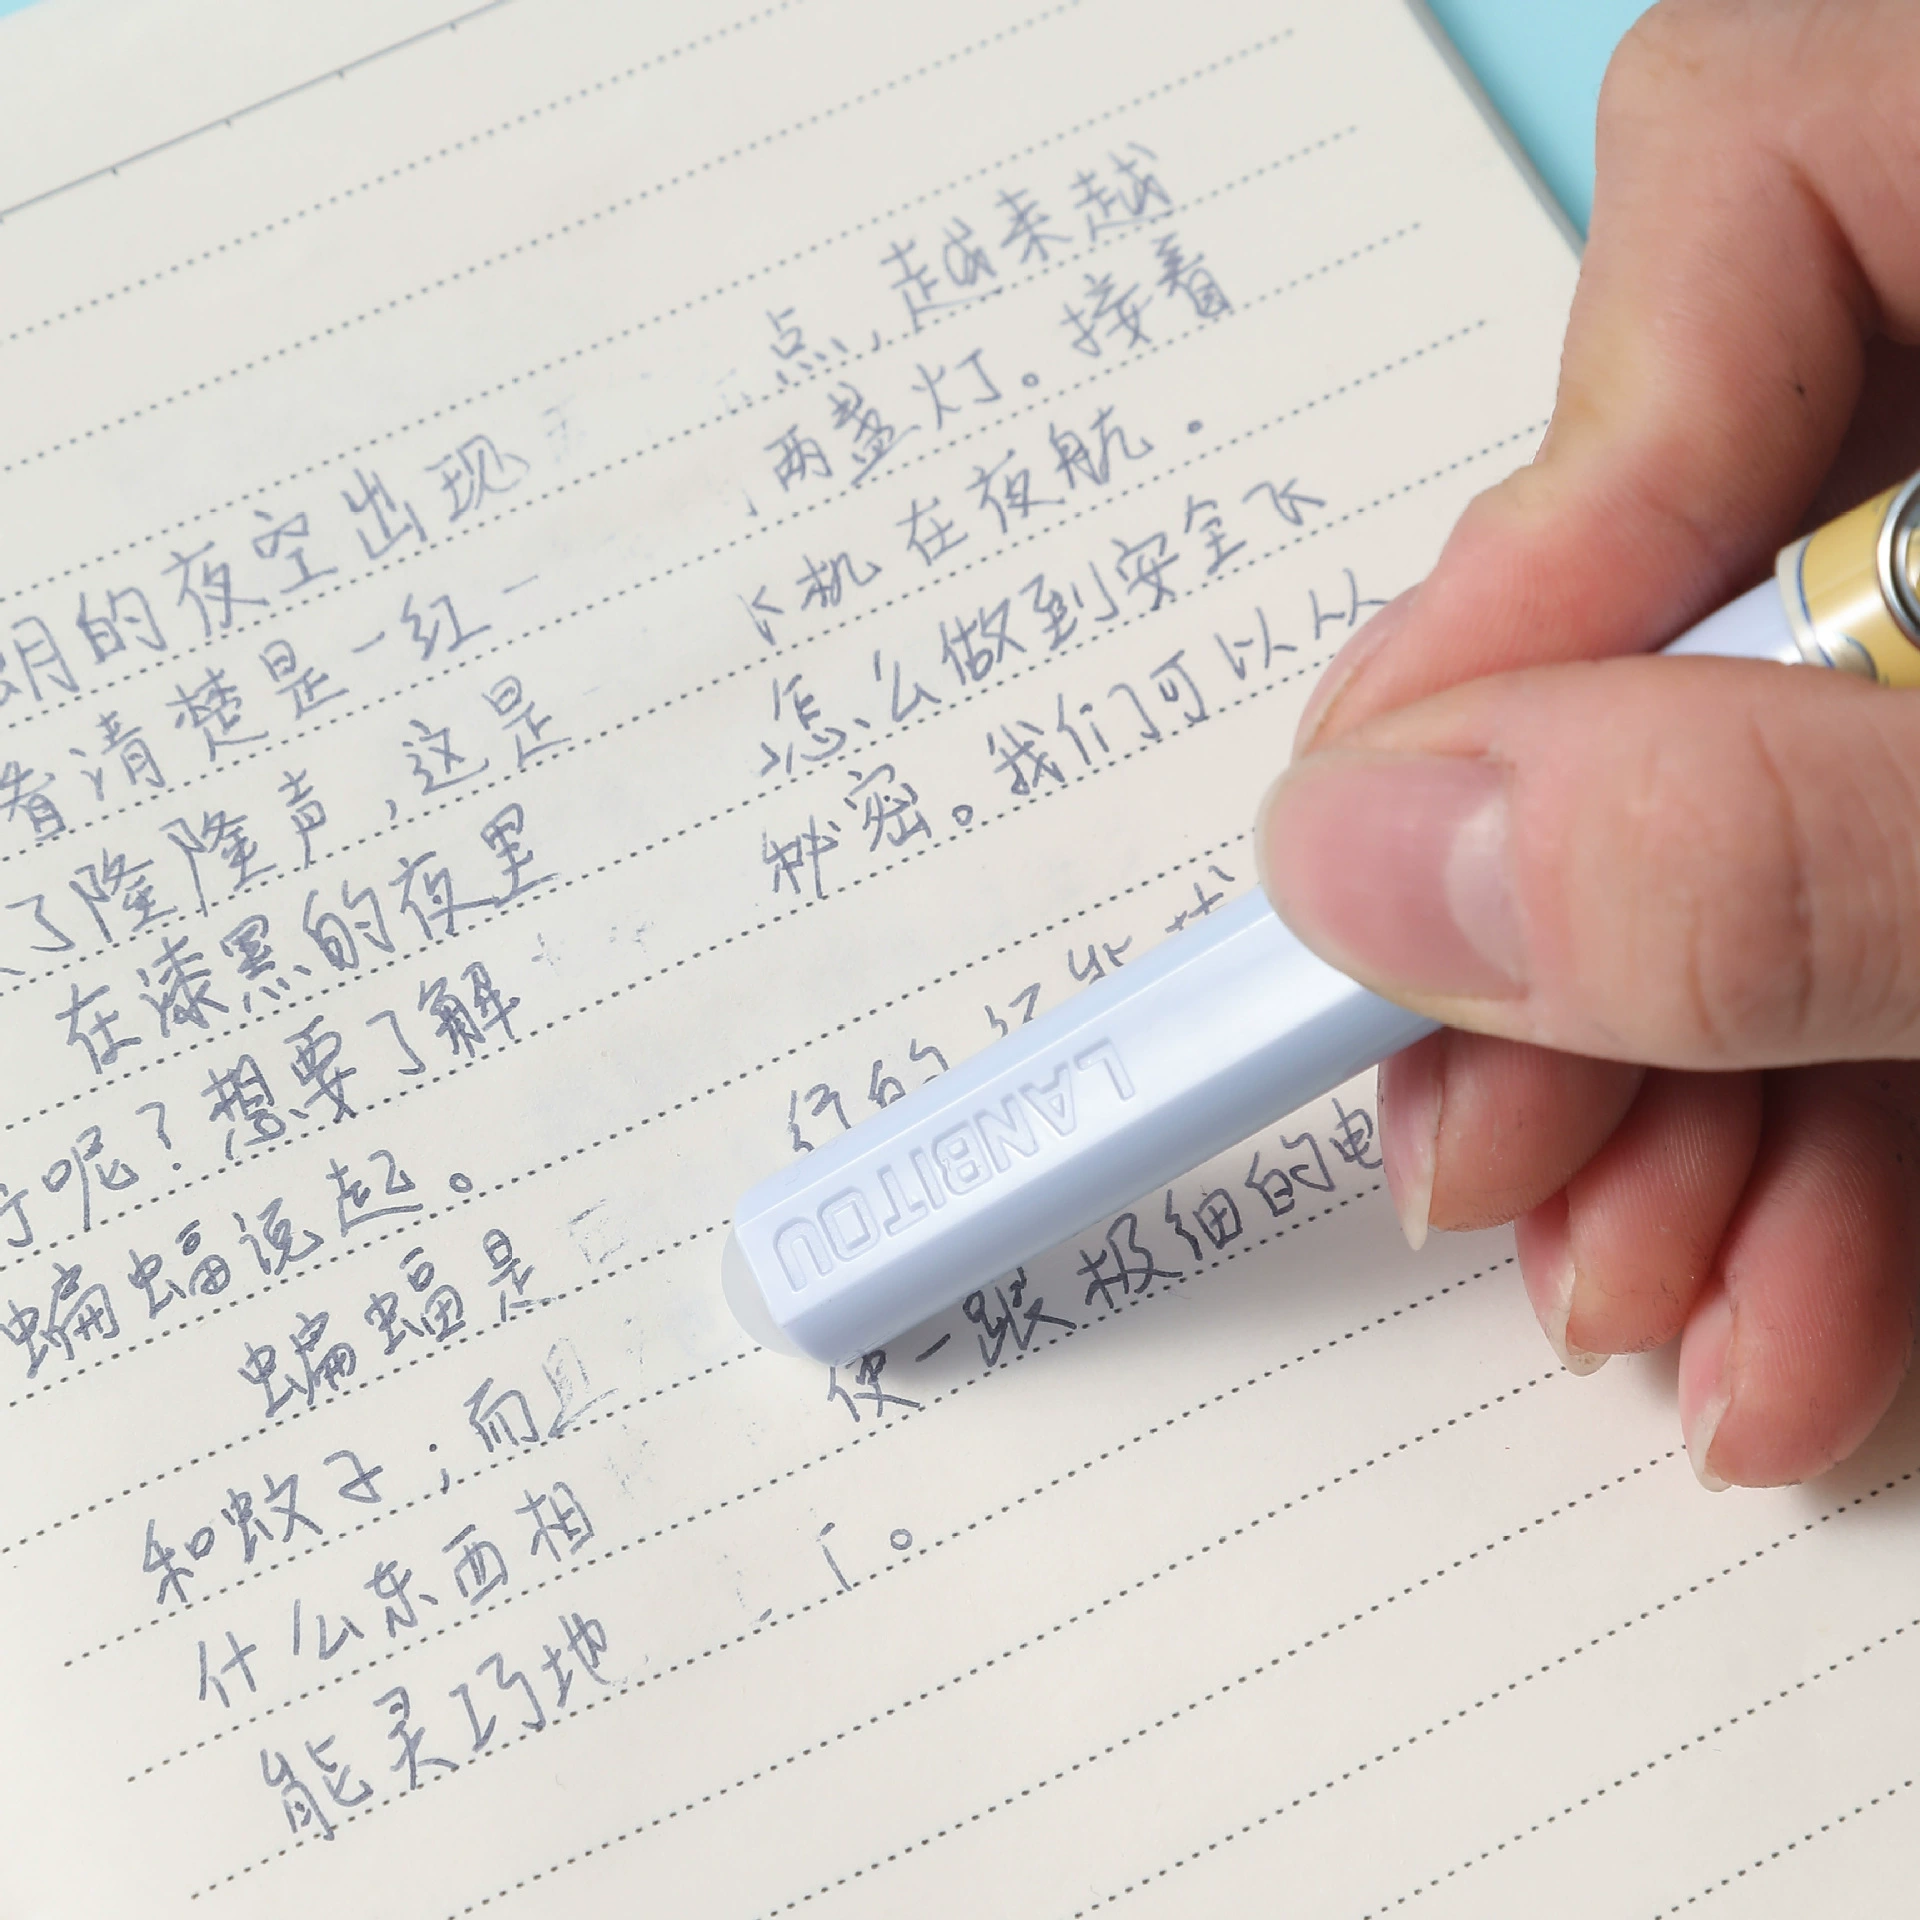 朗的夜空出现 点，越来越
着清楚是一红一 两盏灯。接着
了隆隆声，这是 机在夜航.
在漆黑的夜里 怎么做到安全飞
呢？想要了解 秘密。我们可以从
蝙蝠说起。
蝙蝠是 行的
和蚊子；而且 使一跟极细的电
什么东西相
能灵巧地 。
LANBITOU